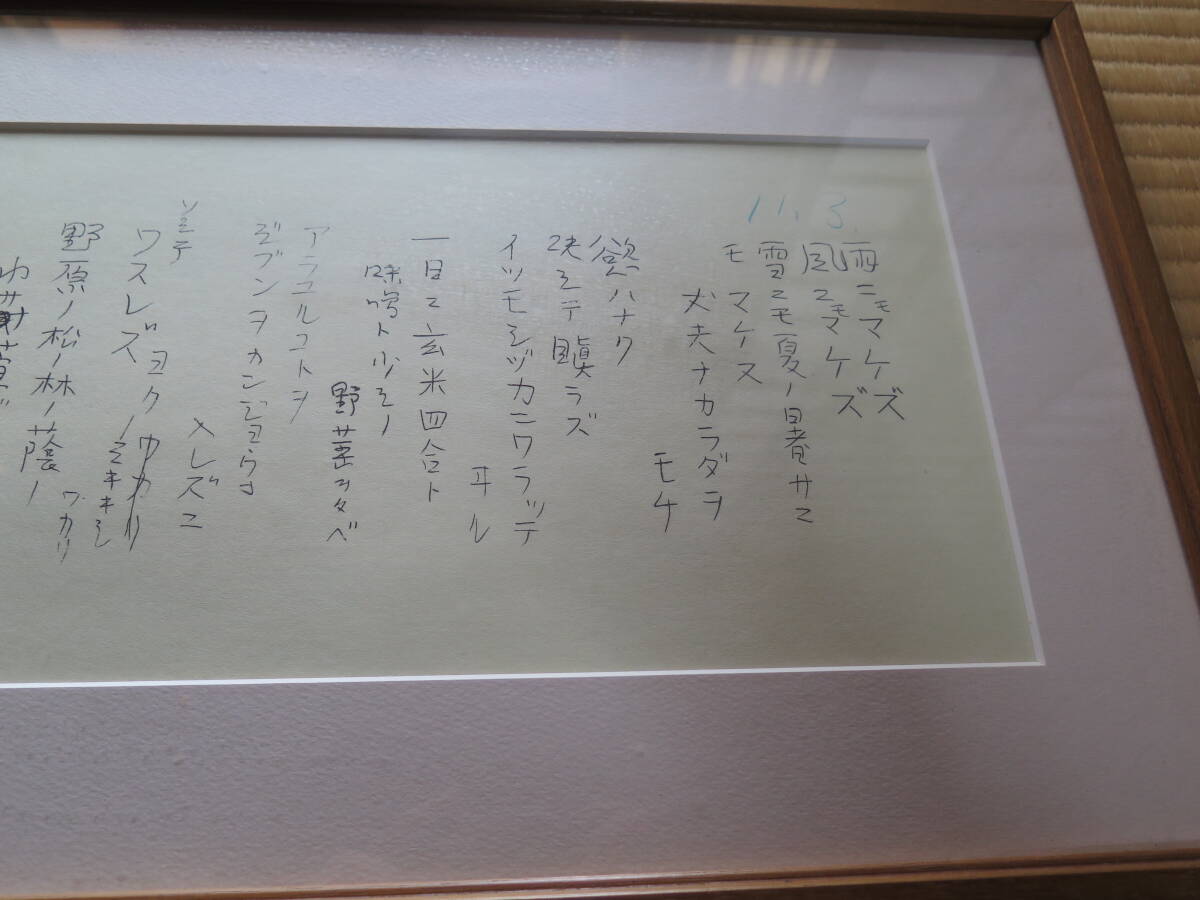 11.3.
雨ニモマケズ
風ニモマケズ
雪ニモ夏ノ暑サニ
モマケヌ
丈夫ナカラダヲ
モチ
慾ハナク
決シテ瞋ラズ
イツモシヅカニワラッテ
ヰル
一日ニ玄米四合ト
味噌ト少シノ
野菜ヲタベ
アラユルコトヲ
ジブンヲカンジョウニ
入レズニ
ヨクミキキシ
ワカリ
ソシテ
ワスレズ
野原ノ松ノ林ノ蔭ノ